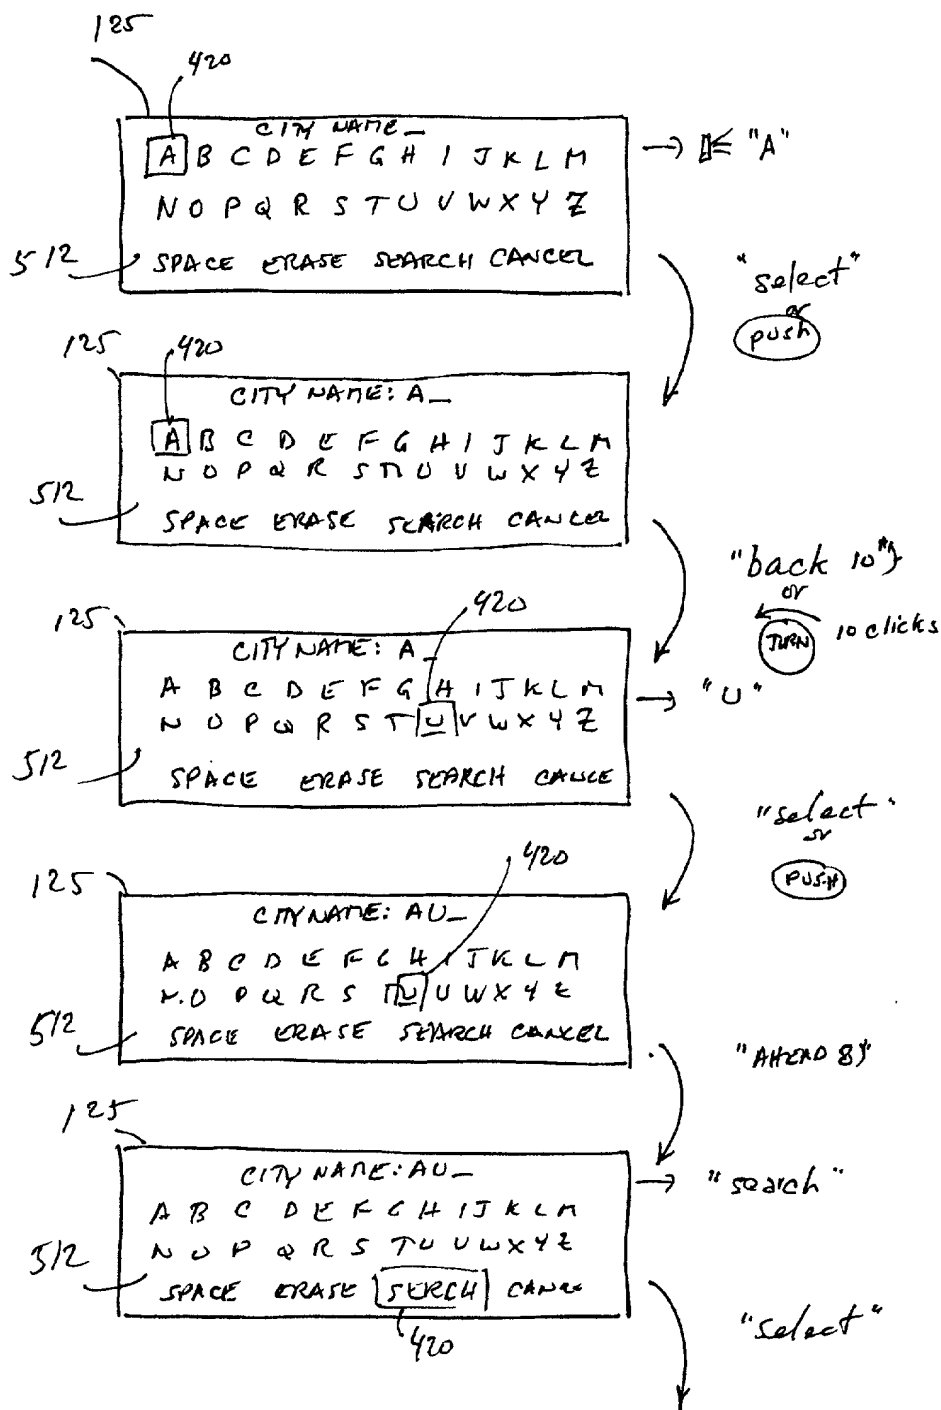 125
420
CITY NAME_
A B C D E F G H I J K L M → "A"
N O P Q R S T U V W X Y Z
512 SPACE ERASE SEARCH CANCEL
"select"
or
push
125 420
CITY NAME: A_
A B C D E F G H I J K L M
N O P Q R S T U V W X Y Z
512
SPACE ERASE SEARCH CANCEL
"back 10"
or
TURN 10 clicks
125 420
CITY NAME: A_
A B C D E F G H I J K L M → "U"
N O P Q R S T U V W X Y Z
512
SPACE ERASE SEARCH CANCE
"select"
or
PUSH
125 420
CITY NAME: AU_
A B C D E F G H I J K L M
N O P Q R S T U U W X Y Z
512 SPACE ERASE SEARCH CANCEL
"AHEAD 8"
125
CITY NAME: AU_ → "search"
A B C D E F G H I J K L M
N O P Q R S T U U W X Y Z
512 SPACE ERASE SERCH CANCE
420
"select"